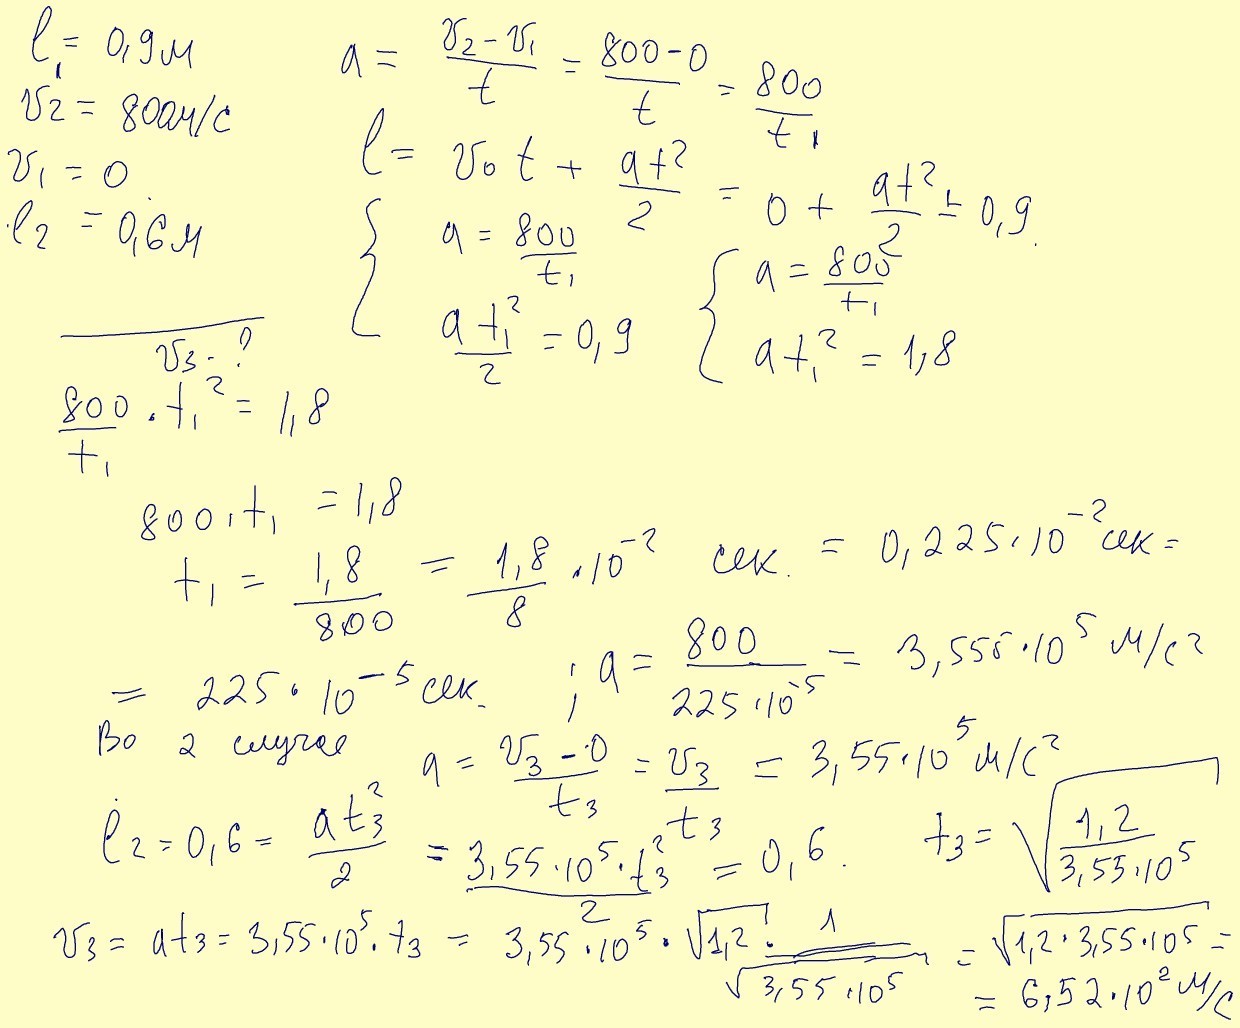 l₁ = 0,9м
v₂ = 800м/с
v₁ = 0
l₂ = 0,6м
v₃ - ?
a = (v₂ - v₁)/t = (800 - 0)/t = 800/t₁
l = v₀t + at²/2 = 0 + at²/2 = 0,9
{ a = 800/t₁
at₁²/2 = 0,9
{ a = 800/t₁
at₁² = 1,8
800/t₁ · t₁² = 1,8
800 · t₁ = 1,8
t₁ = 1,8/800 = 1,8/8 · 10⁻² сек. = 0,225 · 10⁻² сек =
= 225 · 10⁻⁵ сек. ; a = 800/(225 · 10⁻⁵) = 3,555 · 10⁵ м/с²
Во 2 случае a = (v₃ - 0)/t₃ = v₃/t₃ = 3,55 · 10⁵ м/с²
l₂ = 0,6 = at₃²/2 = (3,55 · 10⁵ · t₃²)/2 = 0,6. t₃ = √(1,2/(3,55 · 10⁵))
v₃ = at₃ = 3,55 · 10⁵ · t₃ = 3,55 · 10⁵ · √1,2 · 1/√(3,55 · 10⁵) = √(1,2 · 3,55 · 10⁵) =
= 6,52 · 10² м/с